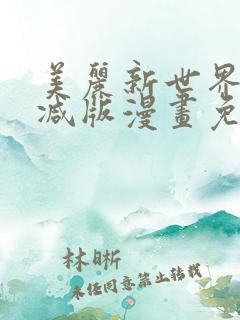 美麗新世界
减版漫畫免
林晰
未任同意禁止转载